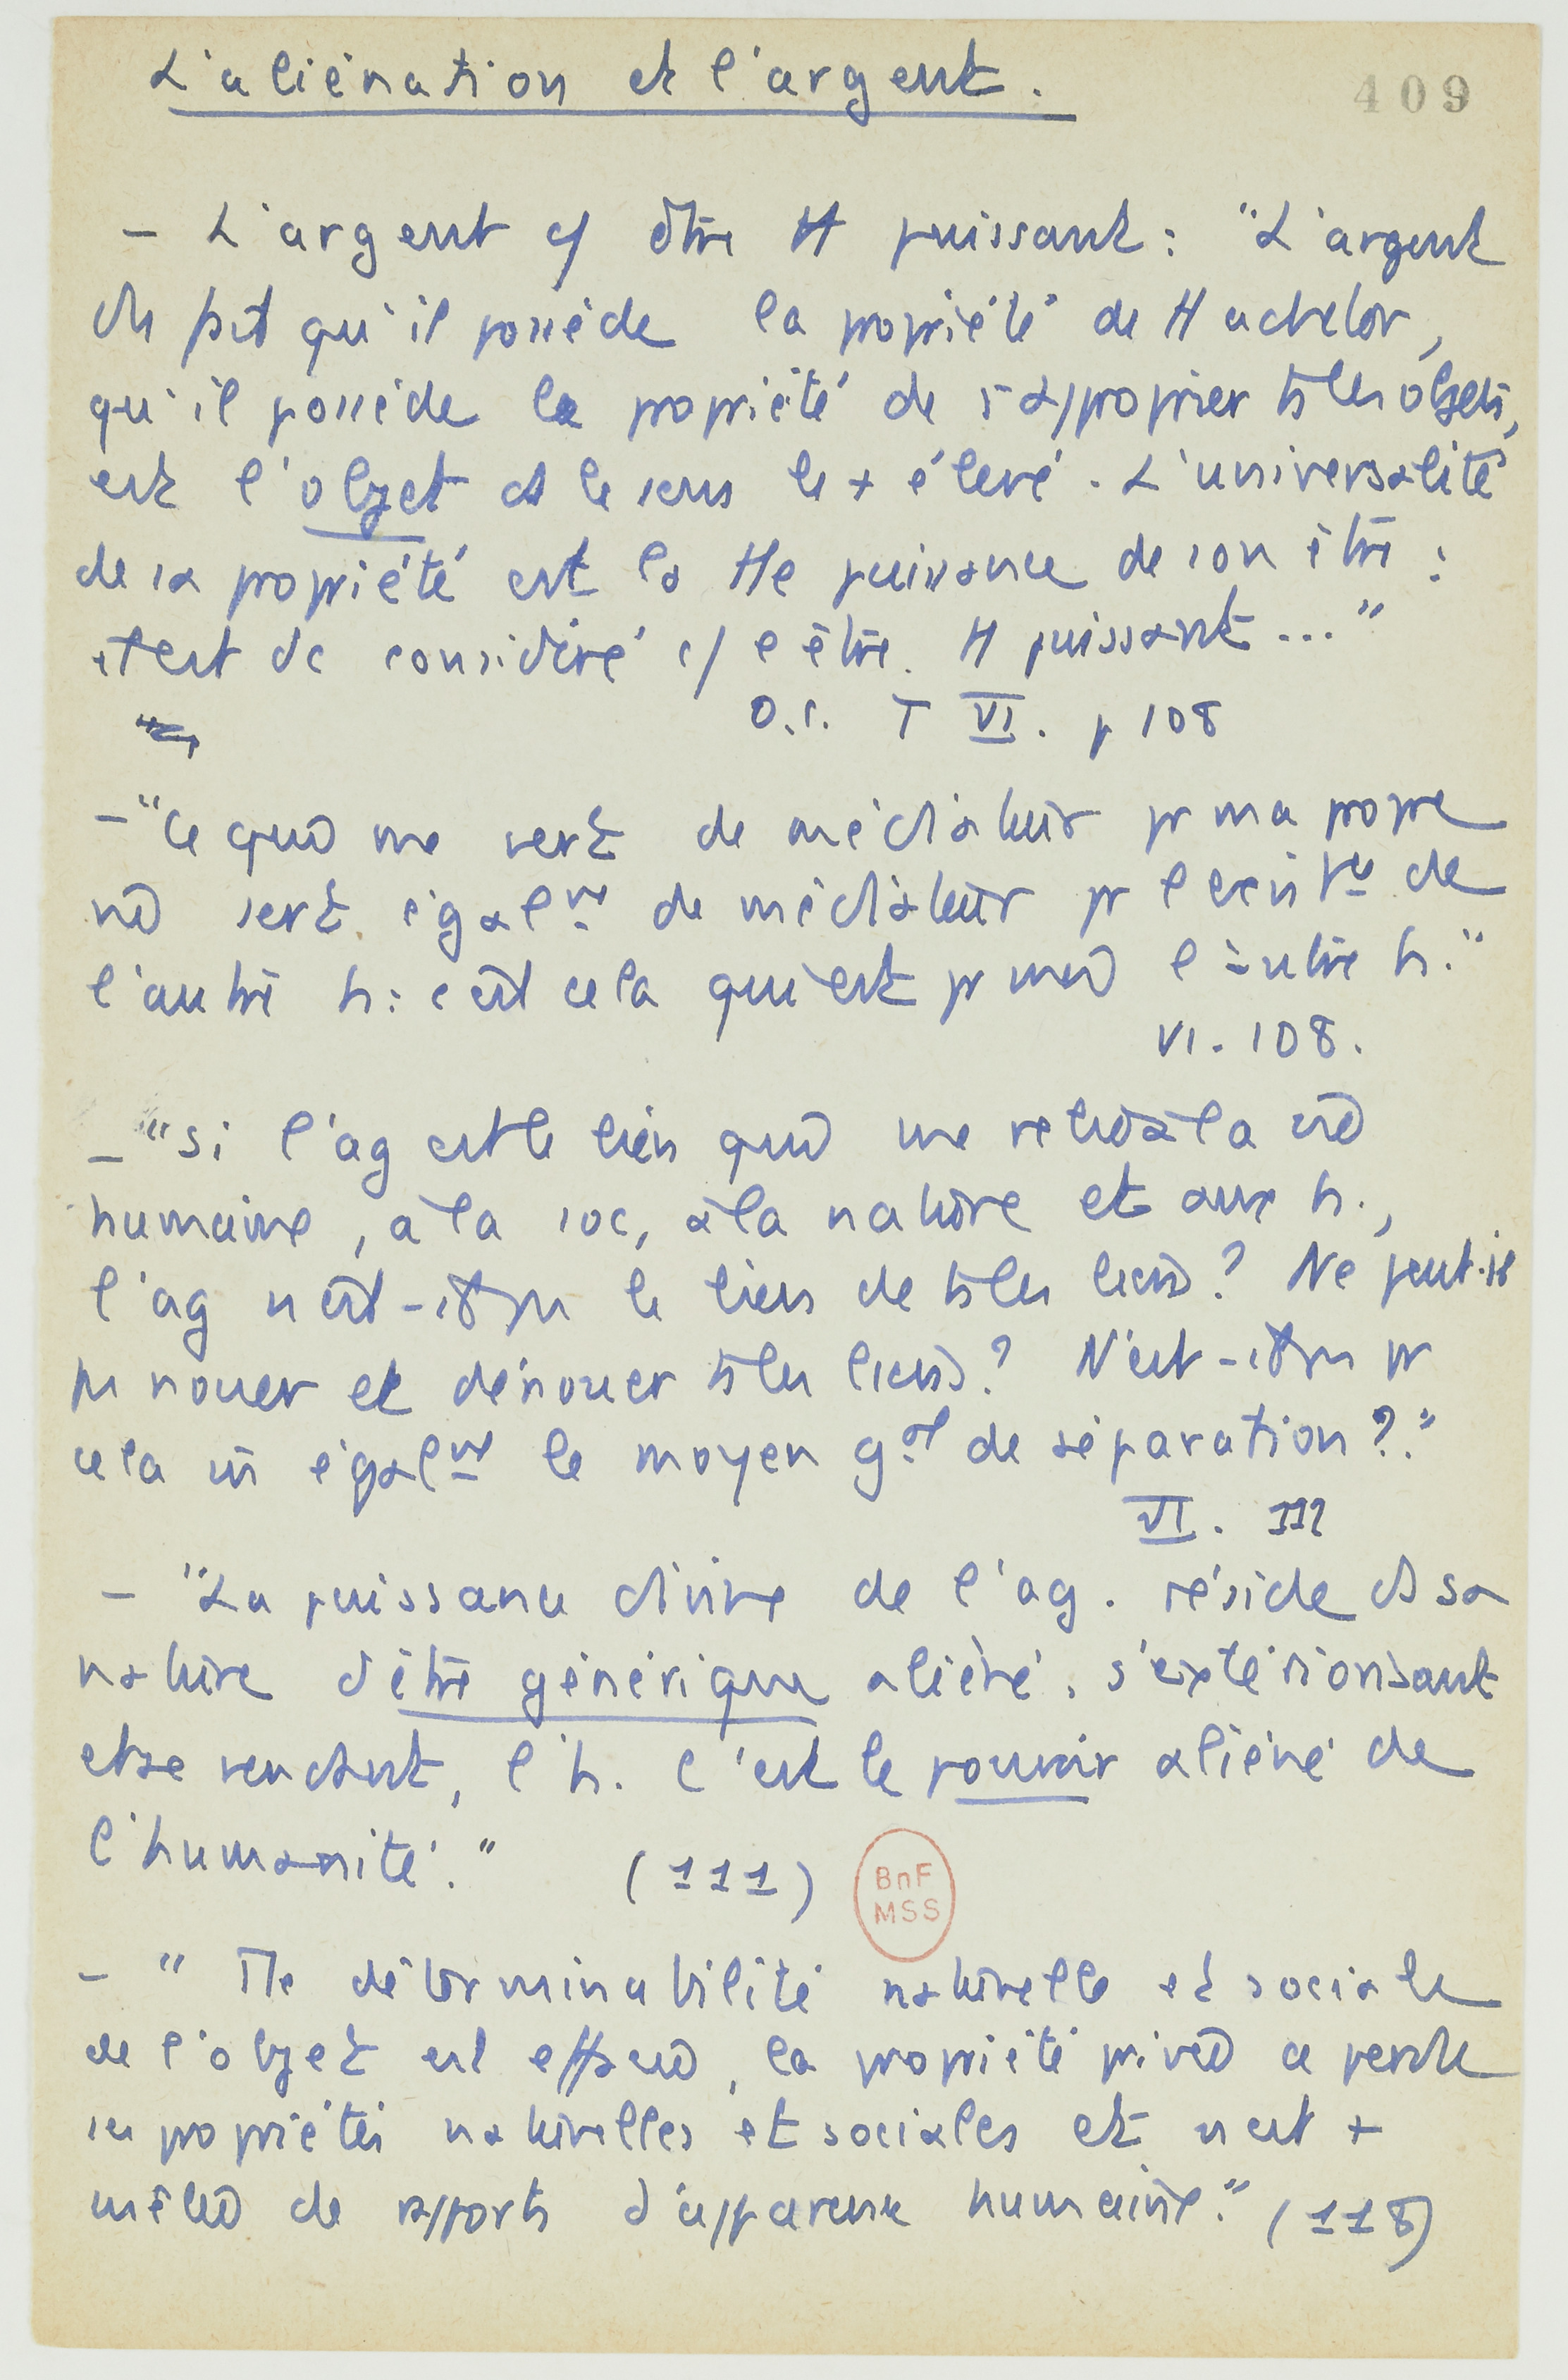 L'aliénation et l'argent.
409
– L'argent c/ être tt puissant : "L'argent
ds pst qu'il possède la propriété de tt acheter,
qu'il possède la propriété de s'approprier ts les objets,
est l'objet ds le sens le + élevé. L'universalité
de sa propriété est la tte puissance de son être :
il est dc considéré c/ l'être tt puissant..."
O.c. T VI. p 108
– "Ce qui me sert de médiateur pr ma propre
vie sert égalmt de médiateur pr l'existce de
l'autre h : c'est cela qui est pr moi l'autre h."
VI. 108.
– "Si l'ag est le lien qui me relie à la vie
humaine, à la soc, à la nature et aux h.,
l'ag n'est-il pas le lien de ts les liens ? Ne peut-il
pas nouer et dénouer ts les liens ? N'est-il pas pr
cela égalmt le moyen gal de séparation ?."
VI. 112
– "La puissance divine de l'ag. réside ds sa
nature d'être générique aliéné, s'extériorisant
et se vendant, l'h. C'est le pouvoir aliéné de
l'humanité." (111)
BnF
MSS
– " Tte déterminabilité naturelle et sociale
de l'objet est effacée, la propriété privée a perdu
ses propriétés naturelles et sociales et n'est +
mêlée de rapports d'apparence humaine." (118)